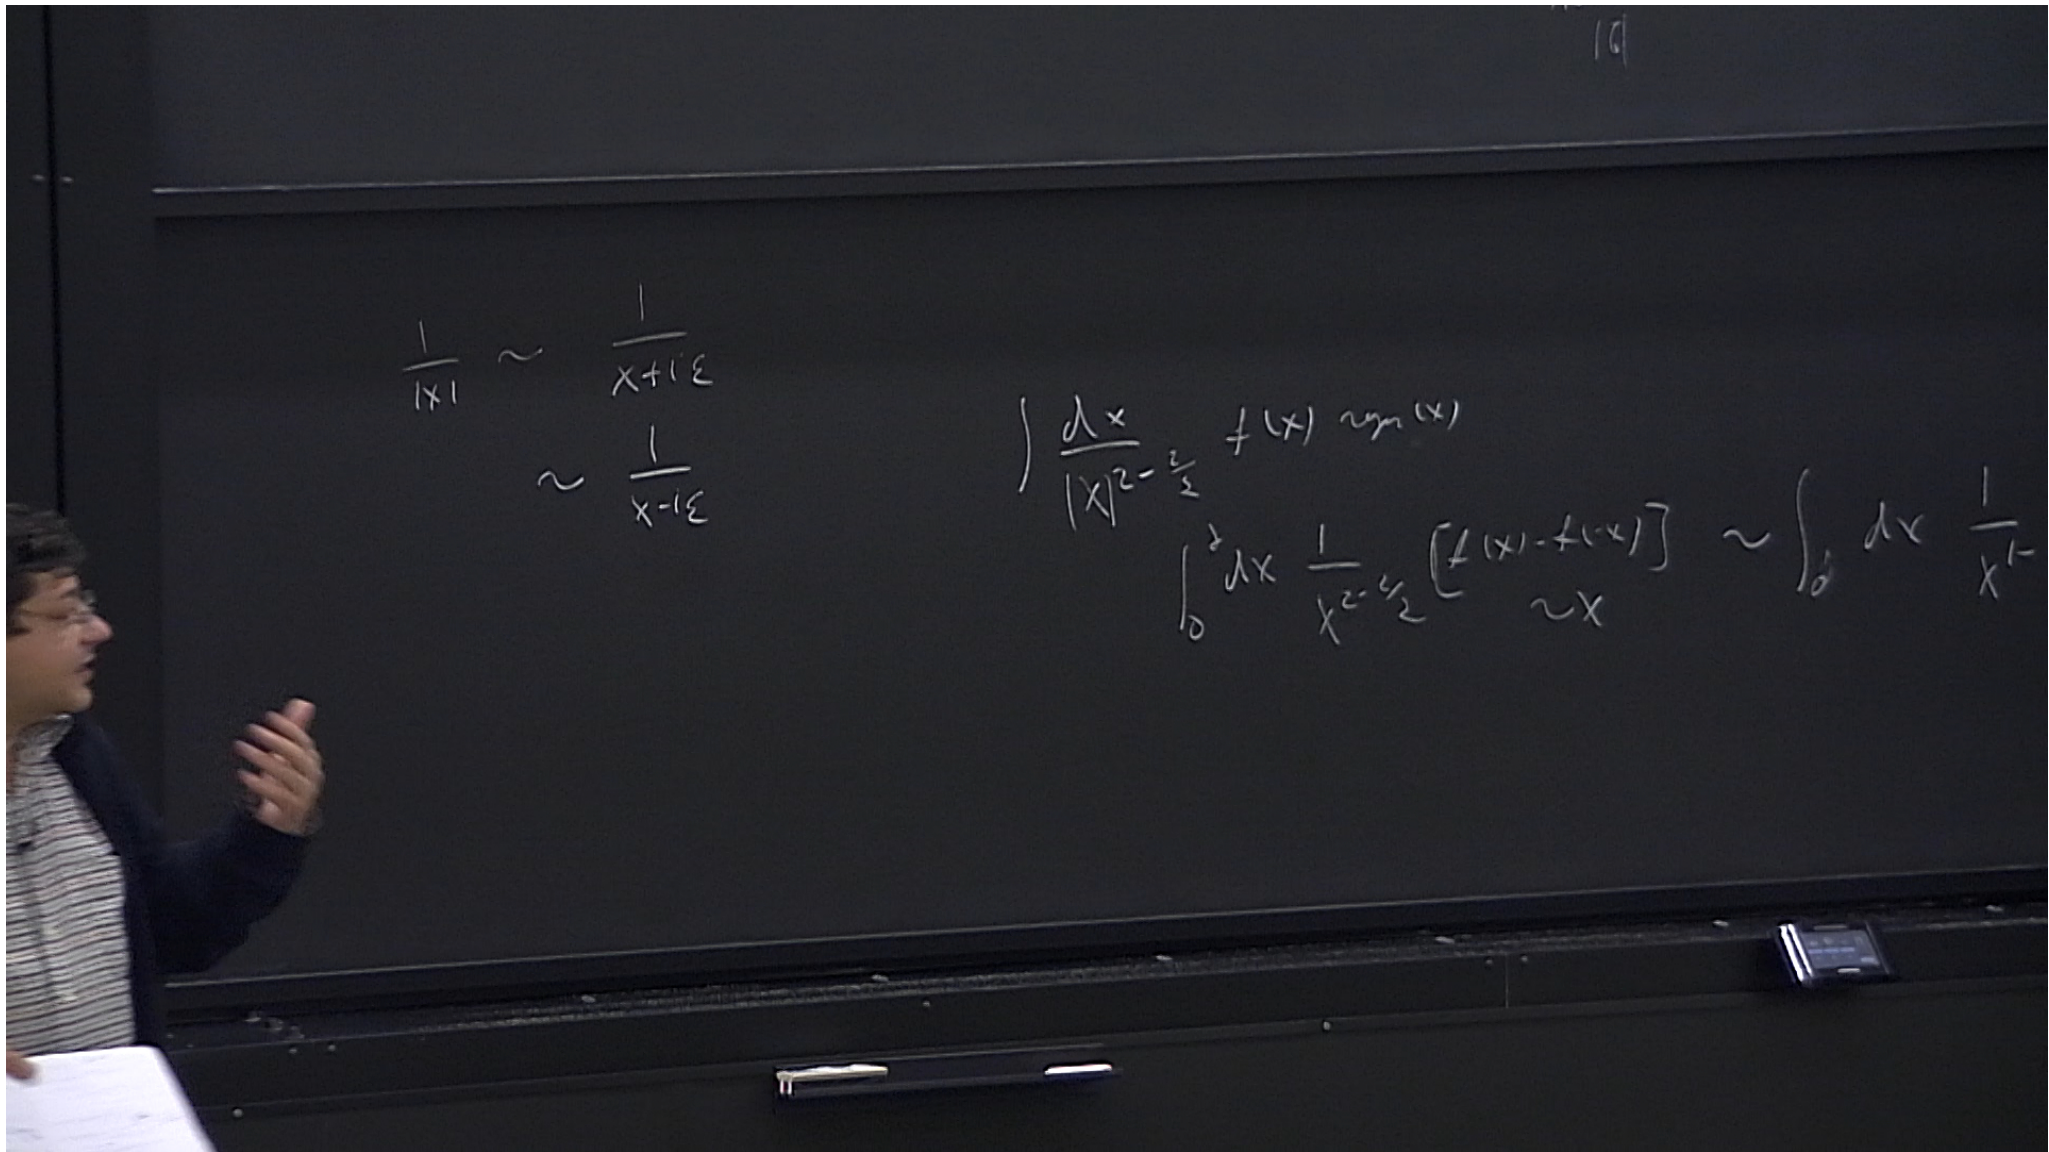 1/|x| ~ 1/(x+iε)
~ 1/(x-iε)
∫ dx/|x|^{2-} f(x) sgn(x)
∫_0 dx 1/x^{2-} [f(x)-f(-x)] ~ ∫_0 dx 1/x^{1-}
~x